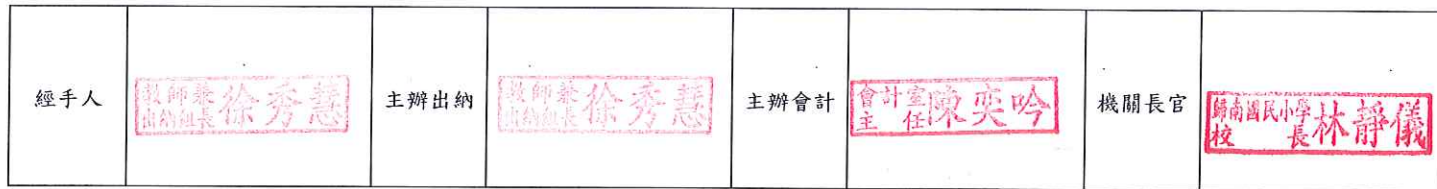 經手人
教師兼
出納組長 徐秀慧
主辦出納
教師兼
出納組長 徐秀慧
主辦會計
會計室
主任 陳奕吟
機關長官
歸南國民小學
校長 林靜儀